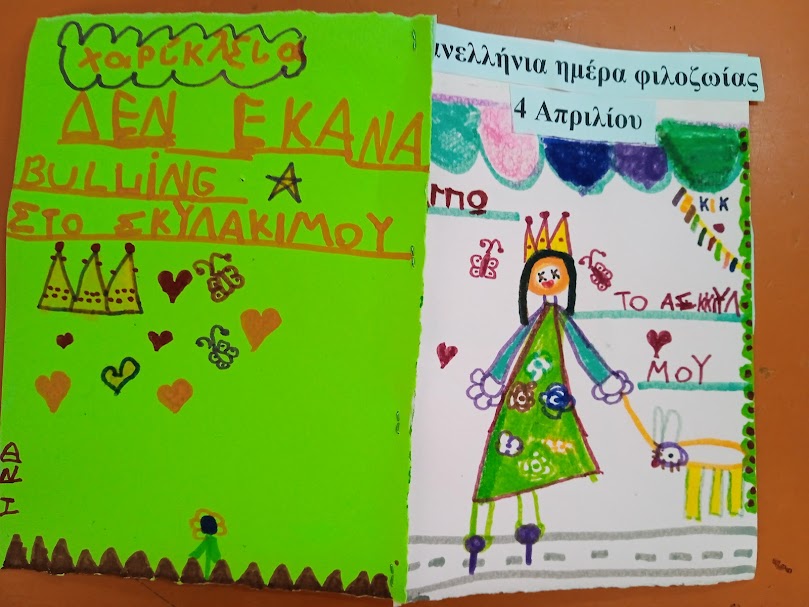 χαρίκλεια
ΔΕΝ ΕΚΑΝΑ
BULLING
ΣΤΟ ΣΚΥΛΑΚΙΜΟΥ
ΗRD
ανελλήνια ημέρα φιλοζωίας
4 Απριλίου
ΚΙΚ
ΤΟ ΑΣΚΚΥΛ
ΜΟΥ